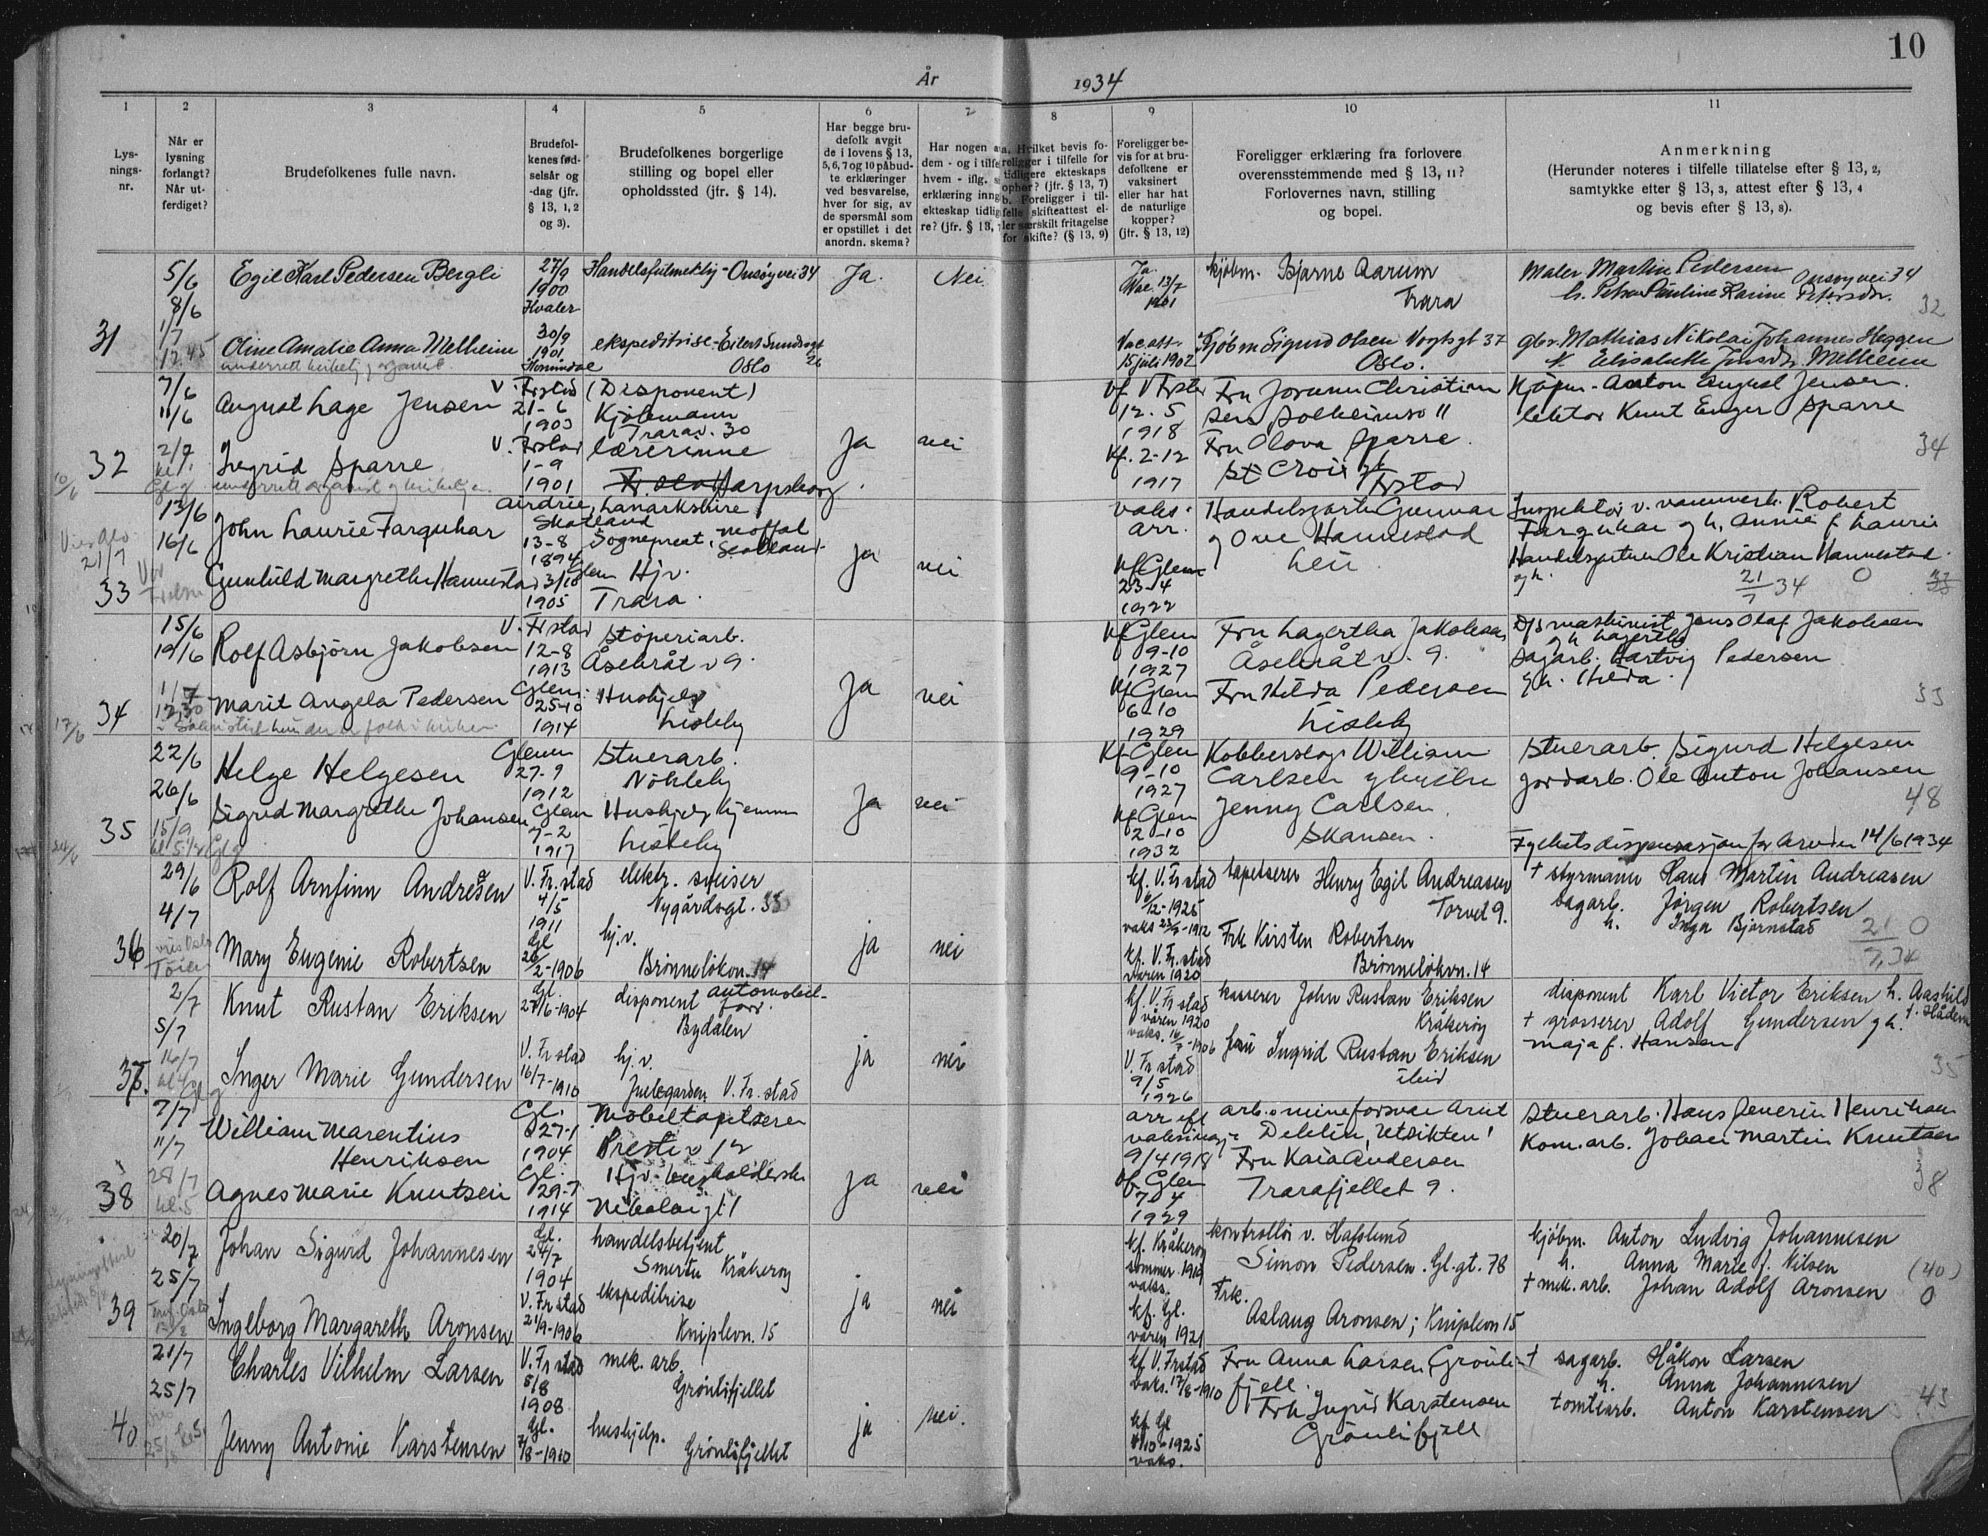 10
År 1934
1 2 3 4 5 6 7 8 9 10 11
Lys-
nings-
nr.
Når er
lysning
forlangt?
Når ut-
ferdiget?
Brudefolkenes fulle navn.
Brudefol-
kenes fød-
selsår og
-dag (jfr.
§ 13, 1, 2
og 3).
Brudefolkenes borgerlige
stilling og bopel eller
opholdssted (jfr. § 14).
Har begge bru-
defolk avgit
de i lovens § 13,
5, 6, 7 og 10 påbud-
te erklæringer
ved besvarelse,
hver for sig, av
de spørsmål som
er opstillet i det
anordn. skema?
Har nogen a
dem - og i tilfe
hvem - iflg. s
erklæring inng
ekteskap tidlig
re? (jfr. § 13,
a. Hvilket bevis fo-
religger i tilfelle for
tidligere ekteskaps
ophør? (jfr. § 13, 7)
b. Foreligger i til-
felle skifteattest el-
ler særskilt fritagelse
for skifte? (§ 13, 9)
Foreligger be-
vis for at bru-
defolkene er
vaksinert
eller har hat
de naturlige
kopper?
(jfr. § 13, 12)
Foreligger erklæring fra forlovere
overensstemmende med § 13, 11?
Forlovernes navn, stilling
og bopel.
Anmerkning
(Herunder noteres i tilfelle tillatelse efter § 13, 2,
samtykke etter § 13, 3, attest efter § 13, 4
og bevis efter § 13, 8).
31
5/6
8/6
1/7
12.45
Egil Karl Pedersen Bergli
27/9
1900
Hvaler
Onsøyvei 34
Ja. Nei.
Ja
Vac. 13/7
1901
kjøbm. Bjarne Aarum
Trara
Maler Martin Pedersen Onsøyvei 34
h. Petra Pauline Karine Petersdr.
32
Oline Amalie Anna Melheim
30/9
1901
ekspeditrise - Eilert Sundsgt
Oslo 26
Vac. att.
15 juli 1902
Kjøbm Sigurd Olsen Vogtsgt 37
Oslo.
gbr. Mathias Nikolai Johannes Heggen
Elisabeth Jonsdr. Melheim
32
7/6
11/6
2/7
August Lage Jensen
V. Frstad
21-6
1903
(Disponent)
Kjøbmann
Trarav. 30
Ja nei
kf V Frstad
12. 5
1918
Fru Jorunn Christian
sen, Solheimso 11
Kjøpm. Anton August Jensen.
lektor Knut Enger Sparre
34
Ingrid Sparre
V. Frstad
1-9
1901
lærerinne
Sarpsborg
Kf. 2-12
1917
Fru Olava Sparre.
St Croix gt
Frstad
33
13/6
16/6
21/7
John Laurie Farquhar
Airdrie, Lanarkshire
Skotland
13-8
1894
Sogneprest, Moffat
Scotland
Ja nei
vaks.
arr.
Handelsgartn Gunnar
og Ove Hannestad
Leie.
Inspektør v. vannverk. Robert
Farquhar g h. Annie f. Laurie
Gunhild Margrethe Hannestad
Glem
3/10
1905
Hjv.
Trara.
kf Glem
23-4
1922
Handelsgartner Ole Kristian Hannestad.
g h.
21/7 34 0
33
34
15/6
19/6
1/7
12,30
Rolf Asbjörn Jakobsen
V. Frstad
12-8
1913
Støperiarb.
Åsebråt v 9.
Ja nei
kf Glem
9-10
1927
Fru Lagertha Jakobsen
Åsebråt v. 9.
D/S maskinist Jens Olaf Jakobsen
g h Lagertha
Marit Angela Pedersen
Glem.
25-10
1914
Hushjelp
Lisleby
kf Glem
6-10
1929
Fru Hilda Pedersen
Lisleby
Sagarb. Hartvig Pedersen
g h. Hilda.
33
17/6
35
22/6
26/6
15/9
Helge Helgesen
Glem
27-9
1912
Stuerarb.
Nökleby
Ja nei
Kf Glem
9-10
1927
Kobberslag. William
Carlsen g hustru
Jenny Carlsen
Skansen.
Stuerarb. Sigurd Helgesen
jordarb. Ole Anton Johansen
48
Sigrid Margrethe Johansen
Glem
7-2
1917
Hushjelp hjemme
Lisleby
kf Glem
2-10
1932
Fylkets dispensasjon for Arveden 14/6 1934
36
29/6
4/7
Rolf Arnfinn Andresen
V. Fr.stad
4/5
1911
elektr. sveiser
Nygårdsgt. 33
ja nei
kf. V. Fr stad
6/12-1925
vaks 23/9-1912
tapetserer Henry Egil Andreasen
Torvet 9.
+ styrmann Hans Martin Andreasen
Mary Eugenie Robertsen
Gl
26/2-1906
hj. v.
Brønneløkvn. 14
kf. V. Fr. stad
våren 1920
Frk Kirsten Robertsen
Brønneløkvn. 14
sagarb. Jørgen Robertsen
h. Inga Bjørnstad
21/7, 34 0
37.
2/7
5/7
14/7
Knut Rustan Eriksen
Gl.
27/6-1904
disponent automobil-
forr.
Bydalen
ja nei
kf. V. Fr stad
våren 1920
vaks. 16/7-1906
kasserer John Rustan Eriksen
Kråkerøy
disponent Karl Victor Eriksen h. Aashild
Inger Marie Gundersen
V. Fr stad
16/7-1910
hj. v.
Julegarden V. Fr. stad
V. Fr stad
9/5
1926
frü Ingrid Rustan Eriksen
ibid
+ grosserer Adolf Gundersen g h.
Maja f. Hansen
35
38
7/7
11/7
28/7
kl. 5
William Marentius
Henriksen
Gl.
27-1
1904
Møbeltapetserer
Prestev 12
ja nei
arr eft
vaksinasj.
9/4 1918
arb. Arnt
Dehlin, Utsikten!
Stuerarb. Hans Severin Henriksen
Agnes Marie Knutsen
Gl.
29-7
1914
Hjv.
Nikolaigt 1
kf Glem
7-4
1929
Fru Kaia Andersen
Trarafjellet 9.
Kom.arb. Johan Martin Knutsen
38
39
20/7
25/7
Johan Sigurd Johannesen
Gl.
24/7
1904
handelsbetjent
Smertu Kråkerøy
ja nei
kf. Kråkerøy
sommer 1919
vaks.
kontrollør v. Hafslund
Simon Pedersen. Gl.gt. 78
kjøbm. Anton Ludvig Johannesen
h. Anna Marie f. Nilsen
(40)
0
Ingeborg Margareth Aronsen
V. Fr stad
21/9-1906
ekspeditrise
Kniplevn. 15
kf. Gl.
våren 1921
Frk.
Aslaug Aronsen; Kniplevn 15
+ mek. arb. Johan Adolf Aronsen
40
21/7
25/7
Charles Vilhelm Larsen
V. Fr stad
5/8
1908
mek. arb.
Grønlifjellet
ja nei.
kf V. Frstad
vaks. 17/8-1910
Fru Anna Larsen, Grønli-
fjell.
+ sagarb. Håkon Larsen
h. Anna Johannesen
Jenny Antonie Karstensen
Gl.
7/8-1910
hushjelp.
Grønlifjellet
kf Gl
1925
vaks.
Frk Ingrid Karstensen
Grönlifjell
tomtearb. Anton Karstensen
43